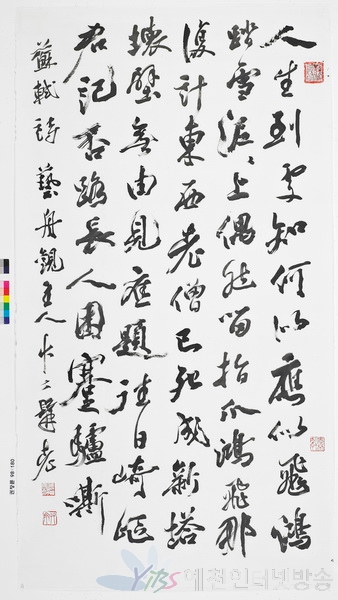 人生到處知何似應似飛鴻
踏雪泥〻上偶然留指爪鴻飛那
復計東西老僧已死成新塔
壞壁無由見舊題往日崎嶇
君記否路長人困蹇驢嘶
蘇軾詩 藝舟觀主人
YiBS 예천인터넷방송